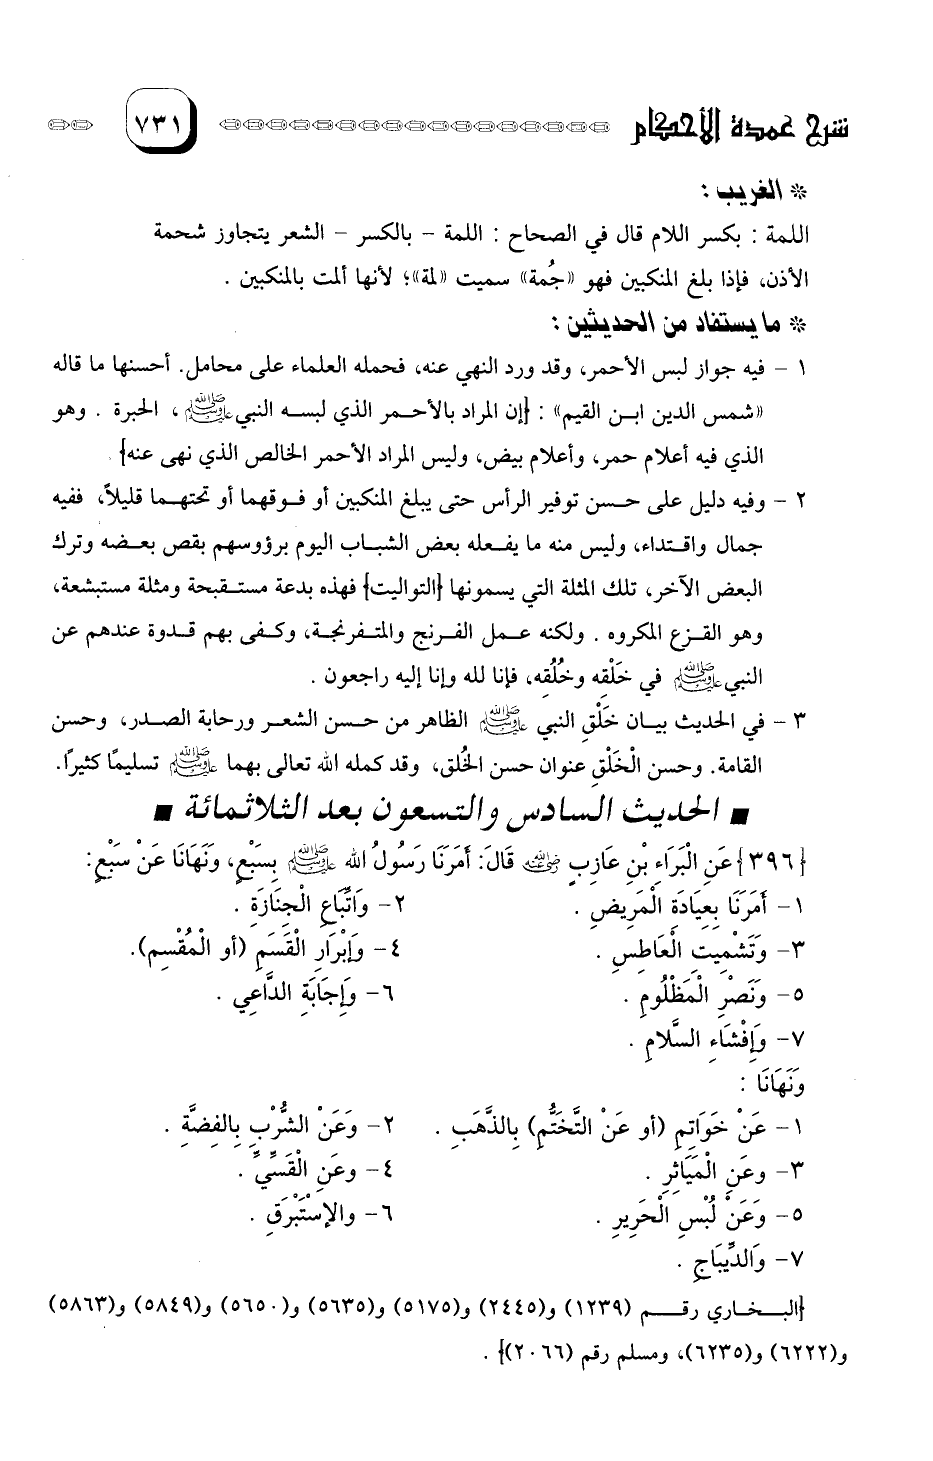 شرح عمدة الأحكام ٧٣١
* الغريب :
اللمة : بكسر اللام قال في الصحاح : اللمة - بالكسر - الشعر يتجاوز شحمة
الأذن، فإذا بلغ المنكبين فهو «جُمة» سميت «لمة»؛ لأنها ألمت بالمنكبين .
* ما يستفاد من الحديثين :
١ - فيه جواز لبس الأحمر، وقد ورد النهي عنه، فحمله العلماء على محامل. أحسنها ما قاله
«شمس الدين ابن القيم» : {إن المراد بالأحمر الذي لبسه النبي ﷺ ، الحبرة . وهو
الذي فيه أعلام حمر، وأعلام بيض، وليس المراد الأحمر الخالص الذي نهى عنه} .
٢ - وفيه دليل على حسن توفير الرأس حتى يبلغ المنكبين أو فوقهما أو تحتهما قليلاً، ففيه
جمال واقتداء، وليس منه ما يفعله بعض الشباب اليوم برؤوسهم بقص بعضه وترك
البعض الآخر، تلك المثلة التي يسمونها {التواليت} فهذه بدعة مستقبحة ومثلة مستبشعة،
وهو القزع المكروه . ولكنه عمل الفرنج والمتفرنجة، وكفى بهم قدوة عندهم عن
النبي ﷺ في خَلْقه وخُلُقه، فإنا لله وإنا إليه راجعون .
٣ - في الحديث بيان خَلْقِ النبي ﷺ الظاهر من حسن الشعر ورحابة الصدر، وحسن
القامة. وحسن الْخَلْقِ عنوان حسن الخُلق، وقد كمله الله تعالى بهما ﷺ تسليمًا كثيرًا.
■ الحديث السادس والتسعون بعد الثلاثمائة ■
{٣٩٦} عَنِ الْبَرَاءِ بْنِ عَازِبٍ رضي الله عنه قَالَ: أَمَرَنَا رَسُولُ الله ﷺ بِسَبْعٍ، وَنَهَانَا عَنْ سَبْعٍ:
١- أَمَرَنَا بِعِيَادَةِ الْمَرِيضِ . ٢- وَاتِّبَاعِ الْجِنَازَةِ .
٣- وَتَشْمِيتِ الْعَاطِسِ . ٤- وَإِبْرَارِ الْقَسَمِ (أو الْمُقْسِمِ).
٥- وَنَصْرِ الْمَظْلُومِ . ٦- وَإِجَابَةِ الدَّاعِي .
٧- وَإِفْشَاءِ السَّلَامِ .
وَنَهَانَا :
١- عَنْ خَوَاتِمِ (أو عَنْ التَّخَتُّمِ) بِالذَّهَبِ . ٢- وَعَنْ الشُّرْبِ بِالفِضَّةِ .
٣- وعَنِ الْمَيَاثِرِ . ٤- وعَنِ الْقَسِّيِّ .
٥- وَعَنْ لُبْسِ الْحَرِيرِ . ٦- والإِسْتَبْرَقِ .
٧- وَالدِّيبَاجِ .
{البخاري رقم (١٢٣٩) و(٢٤٤٥) و(٥١٧٥) و(٥٦٣٥) و(٥٦٥٠) و(٥٨٤٩) و(٥٨٦٣)
و(٦٢٢٢) و(٦٢٣٥)، ومسلم رقم (٢٠٦٦)} .